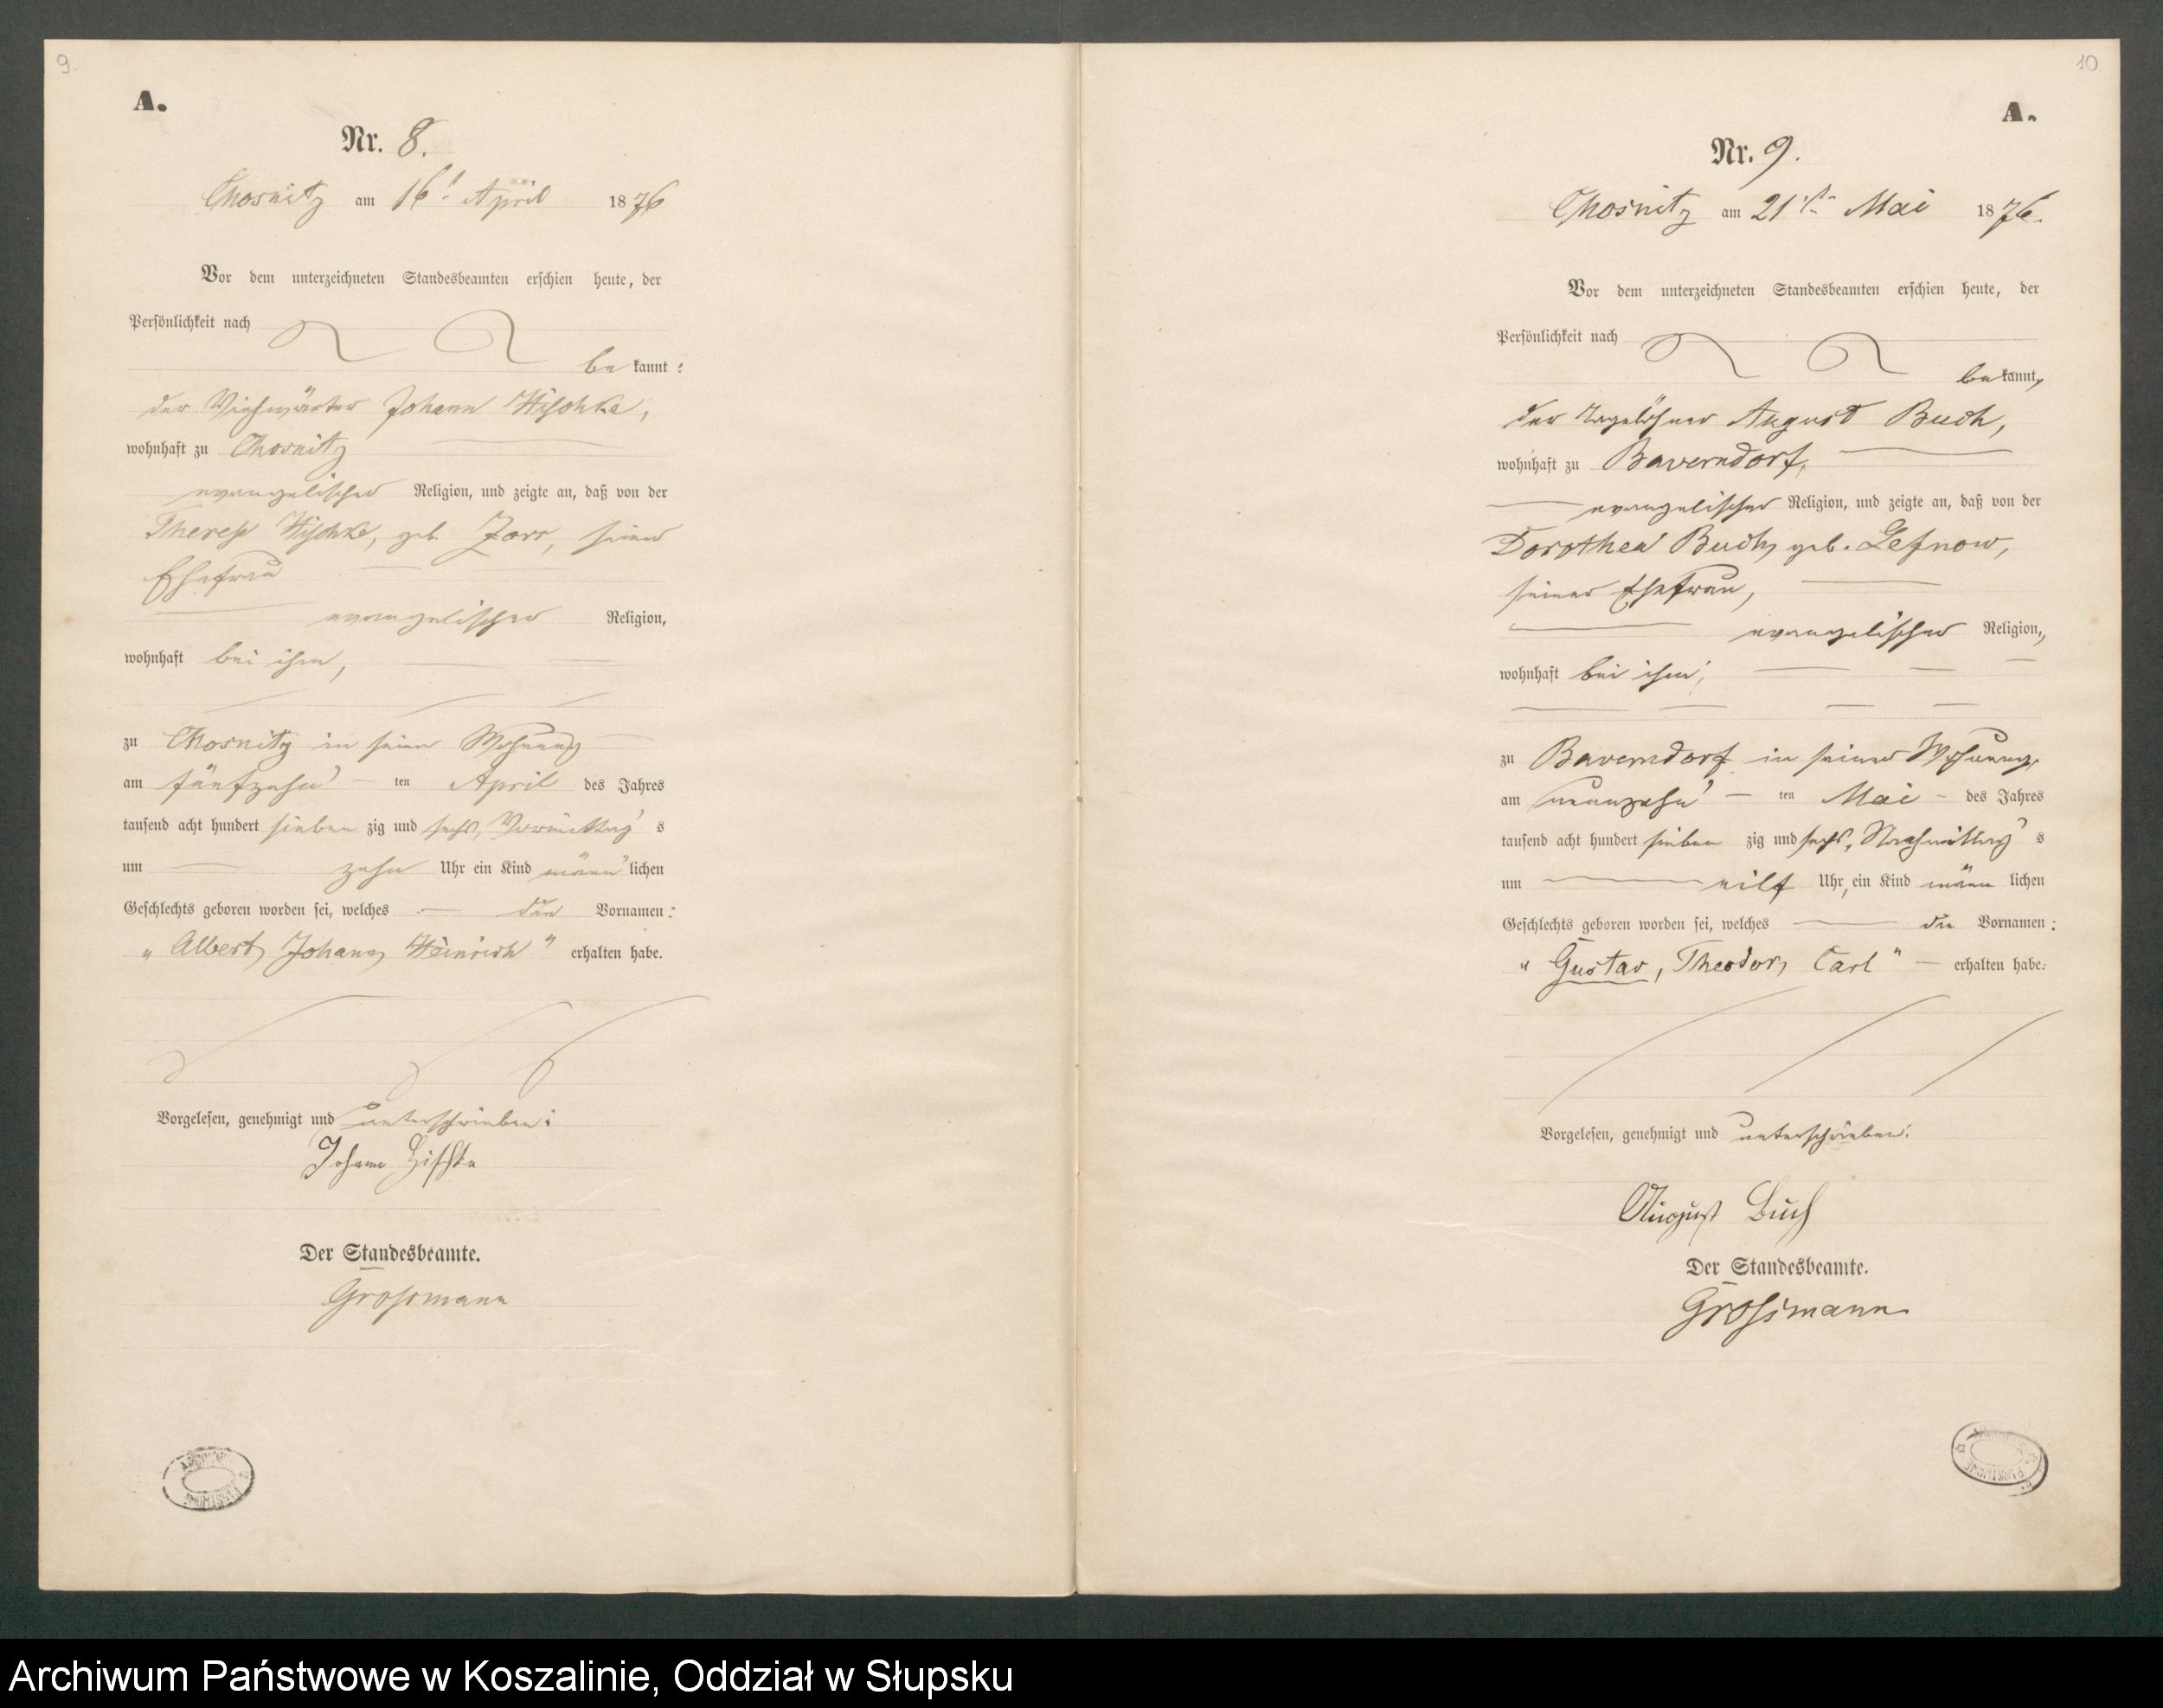 9.
A.
Nr. 8.
Chosnitz am 16t. April 1876
Vor dem unterzeichneten Standesbeamten erschien heute, der
Persönlichkeit nach
bekannt:
der Viehwärter Johann Hischke,
wohnhaft zu Chosnitz
evangelischer Religion, und zeigte an, daß von der
Therese Hischke, geb. Jorr, seiner
Ehefrau
evangelischer Religion,
wohnhaft bei ihm,
zu Chosnitz in seiner Wohnung
am fünfzehn ten April des Jahres
tausend acht hundert sieben zig und sechs, Vormittag s
um zehn Uhr ein Kind männ lichen
Geschlechts geboren worden sei, welches die Vornamen:
„ Albert, Johann, Heinrich " erhalten habe.
Vorgelesen, genehmigt und unterschrieben:
Johann Hischke
Der Standesbeamte.
Grossmann
10
A.
Nr. 9.
Chosnitz am 21ten Mai 1876.
Vor dem unterzeichneten Standesbeamten erschien heute, der
Persönlichkeit nach
bekannt,
der Tagelöhner August Buch,
wohnhaft zu Baverndorf,
evangelischer Religion, und zeigte an, daß von der
Dorothea Buch, geb. Lessnow,
seiner Ehefrau,
evangelischer Religion,
wohnhaft bei ihm,
zu Baverndorf in seiner Wohnung,
am neunzehn ten Mai des Jahres
tausend acht hundert sieben zig und sechs, Nachmittag s
um eilf Uhr, ein Kind männ lichen
Geschlechts geboren worden sei, welches die Vornamen:
„ Gustav, Theodor, Carl " erhalten habe.
Vorgelesen, genehmigt und unterschrieben:
August Buch
Der Standesbeamte.
Grossmann
Archiwum Państwowe w Koszalinie, Oddział w Słupsku